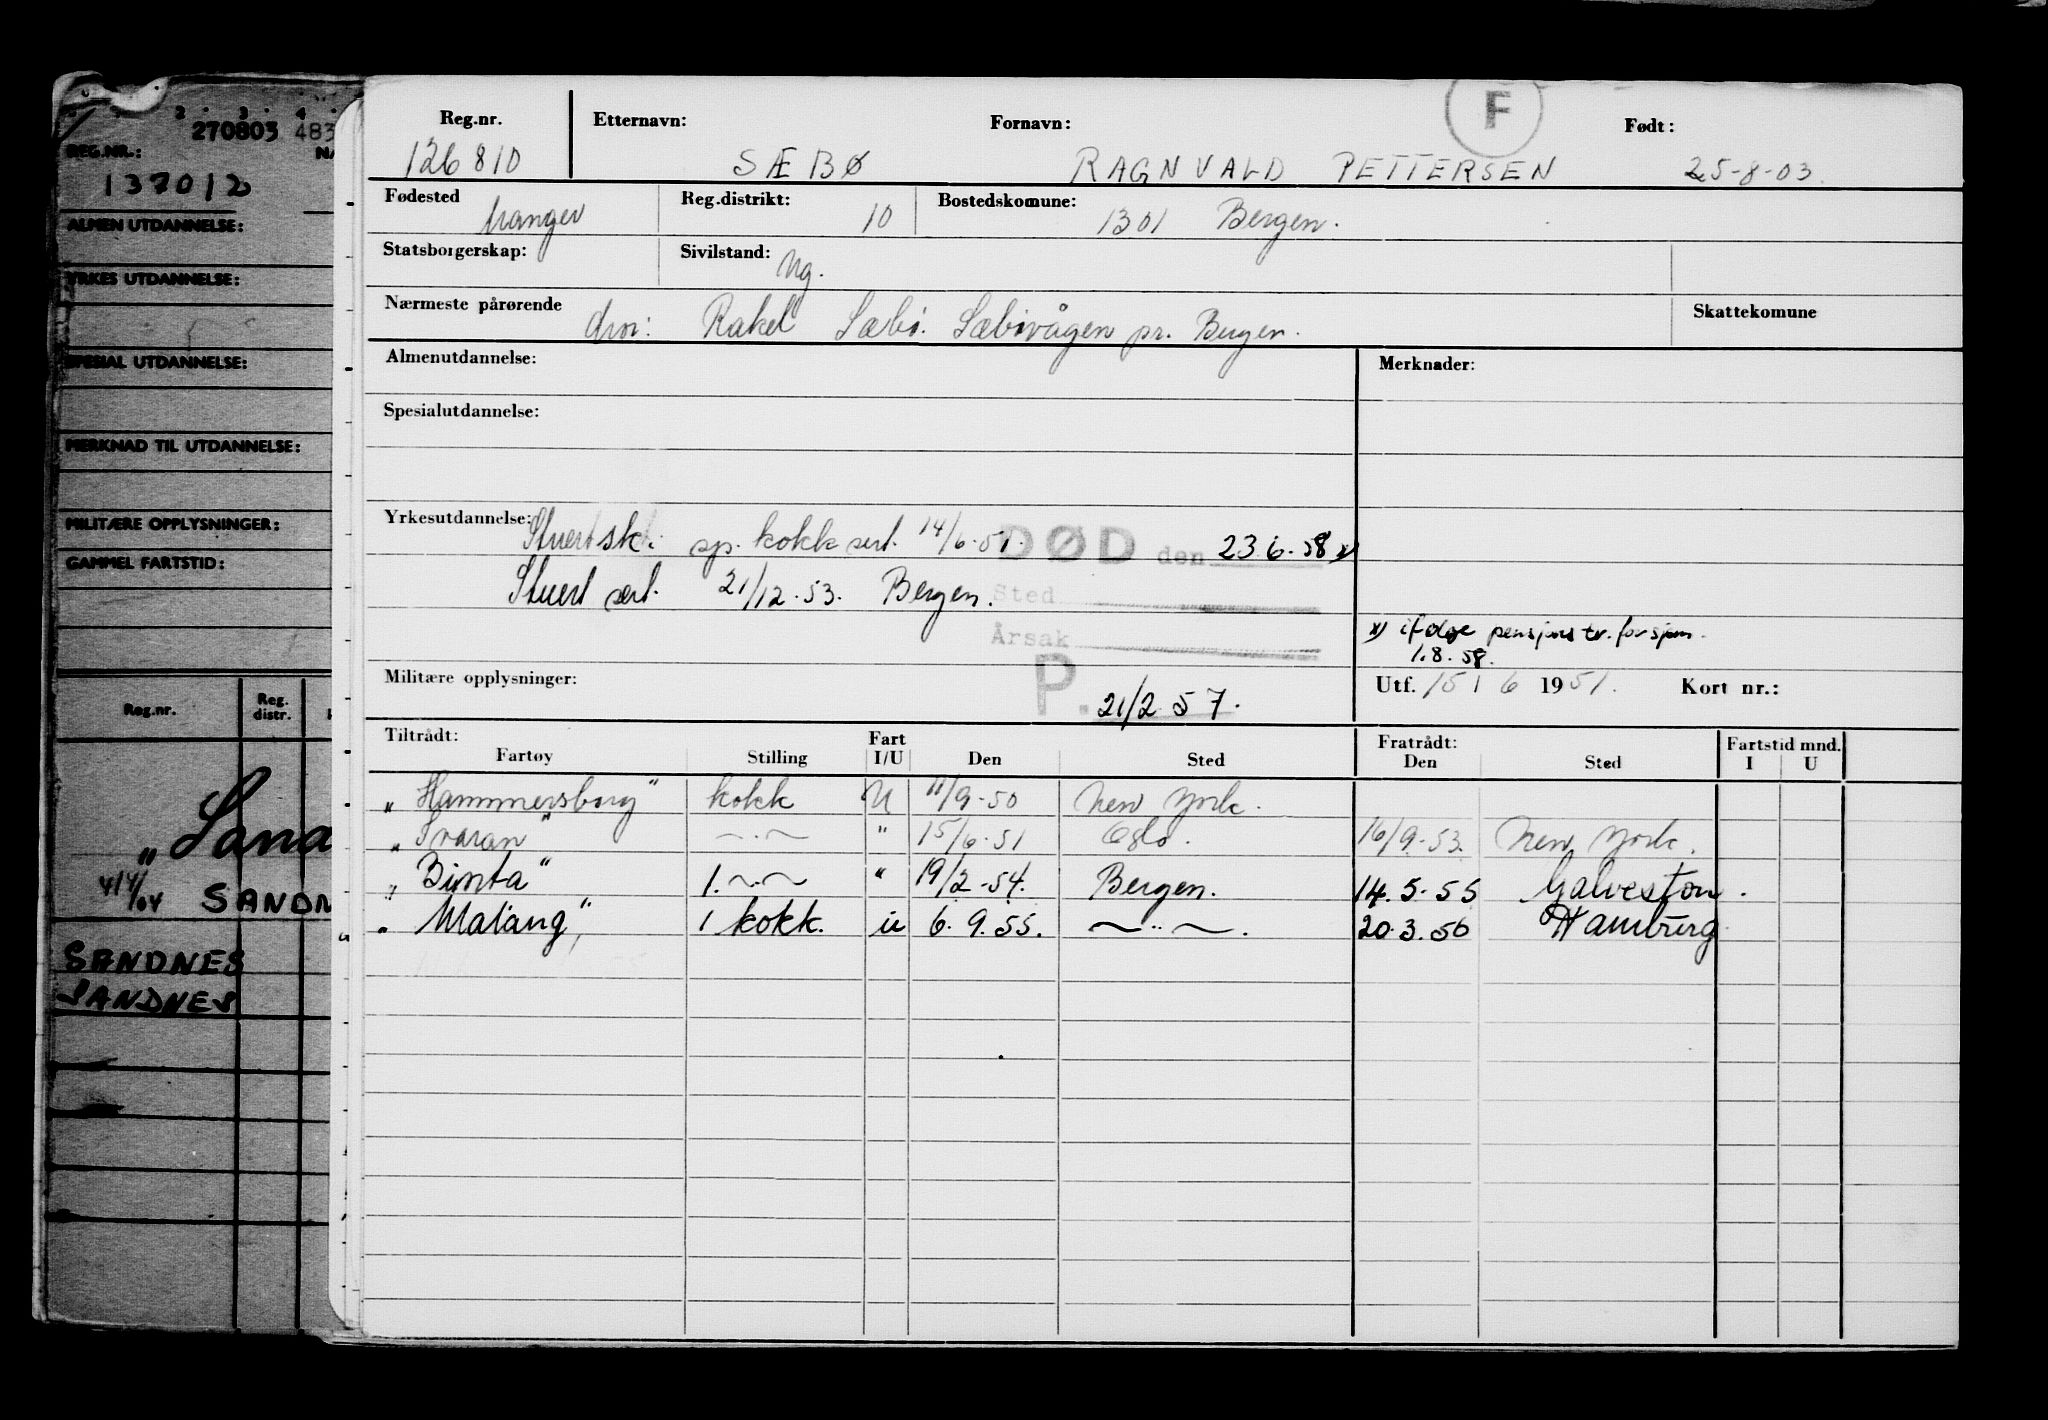 2 3 4
270803 483
REG.NR.:
137012
ALMEN UTDANNELSE:
YRKES UTDANNELSE:
SPESIAL UTDANNELSE:
MERKNAD TIL UTDANNELSE:
MILITÆRE OPPLYSNINGER:
GAMMEL FARTSTID:
Reg.nr. Reg. distr.
SANDNES
SANDNES
F
Reg.nr. Etternavn: Fornavn: Født:
126810 SÆBØ RAGNVALD PETTERSEN 25-8-03
Fødested Reg.distrikt: Bostedskomune:
Manger 10 1301 Bergen.
Statsborgerskap: Sivilstand:
Ug.
Nærmeste pårørende Skattekomune
Rakel Sæbø. Sæbøvågen pr. Bergen.
Almenutdannelse: Merknader:
Spesialutdannelse:
Yrkesutdannelse:
Stuertsk. sp. kokk sert. 14/6.51. DØD den 23 6. 58 x)
Stuert sert. 21/12.53. Bergen. Sted
Årsak
x) ifølge pensjonstr. for sjøm.
1.8.58.
Militære opplysninger: P. 21/2.57. Utf. 15 / 6 1951. Kort nr.:
Tiltrådt: Fratrådt: Fartstid mnd.
Fartøy Stilling Fart I/U Den Sted Den Sted I U
"Hammersborg" kokk U 11/9-50 New York.
"Svaran" —·— " 15/6-51 Oslo. 16/9.53. New York.
"Binta" 1.—·— " 19/2-54. Bergen. 14.5-55 Galveston.
"Malang", 1 kokk. u 6.9.55. —··—. 20.3.56 Hamburg